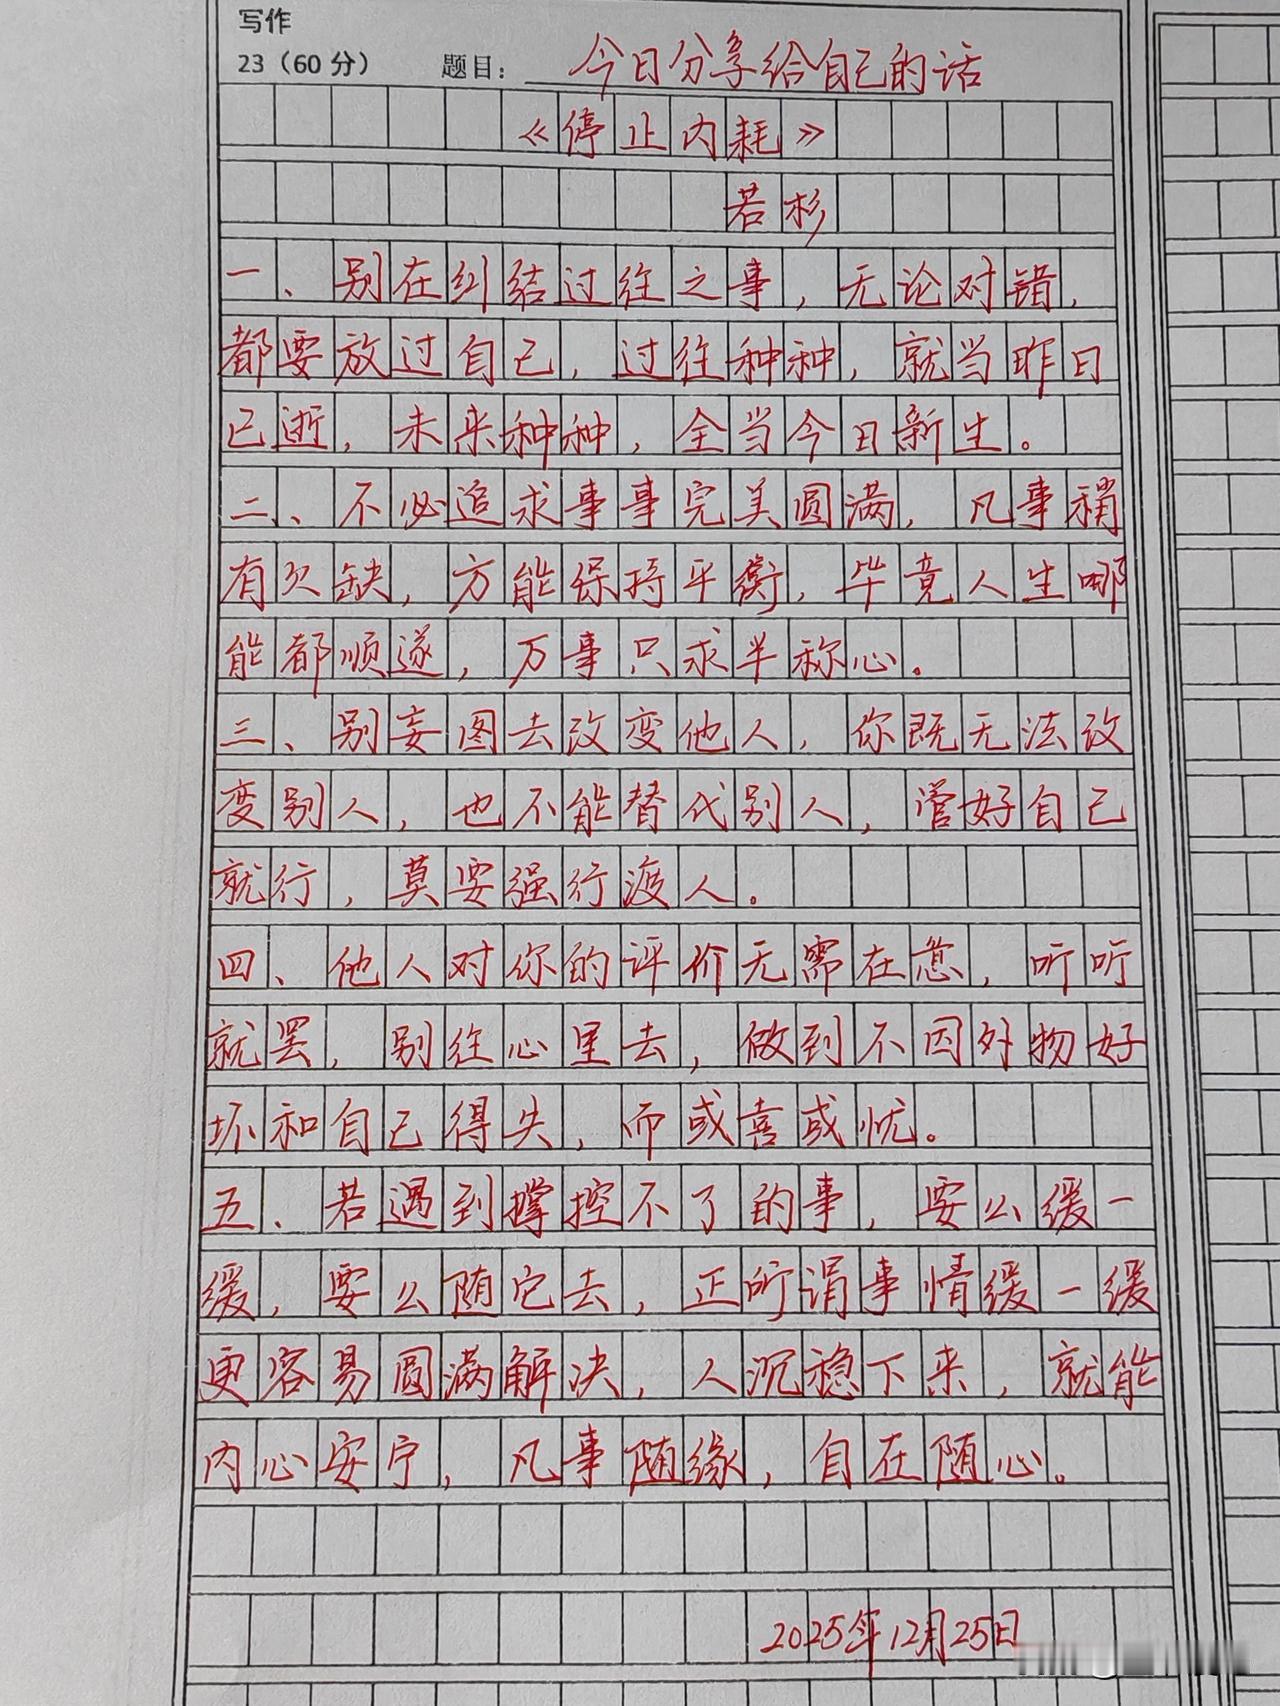 写作
23（60分） 题目：今日分享给自己的话
《停止内耗》
若杉
一、别在纠结过往之事，无论对错，
都要放过自己，过往种种，就当昨日
已逝，未来种种，全当今日新生。
二、不必追求事事完美圆满，凡事稍
有欠缺，方能保持平衡，毕竟人生哪
能都顺遂，万事只求半称心。
三、别妄图去改变他人，你既无法改
变别人，也不能替代别人，管好自己
就行，莫要强行渡人。
四、他人对你的评价无需在意，听听
就罢，别往心里去，做到不因外物好
坏和自己得失，而或喜或忧。
五、若遇到撑控不了的事，要么缓一
缓，要么随它去，正所谓事情缓一缓
更容易圆满解决，人沉稳下来，就能
内心安宁，凡事随缘，自在随心。
2025年12月25日